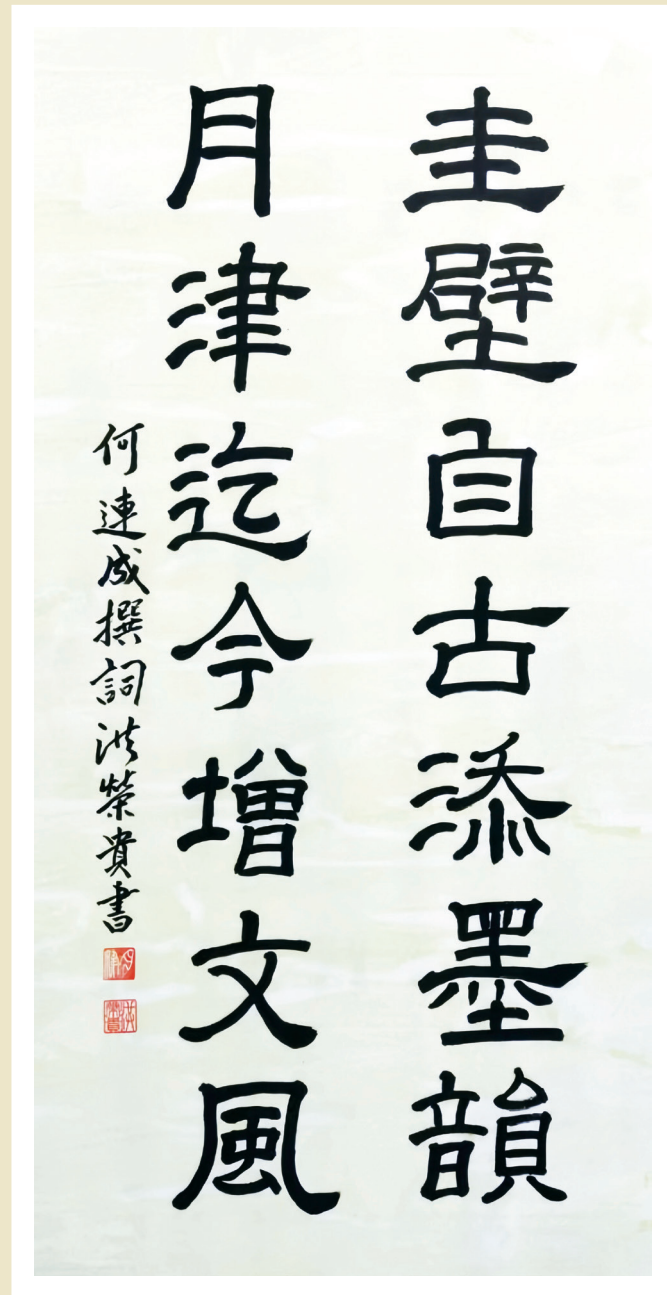 圭壁自古添墨韻
月津迄今增文風
何連成撰詞洪榮貴書